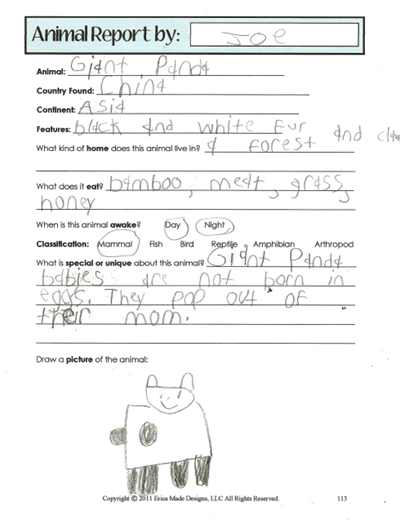 Animal Report by: Joe
Animal: Giant Panda
Country Found: China
Continent: Asia
Features: black and white Fur and claw
What kind of home does this animal live in? a forest
What does it eat? bamboo, meat, grass,
honey
When is this animal awake? Day Night
Classification: Mammal Fish Bird Reptile Amphibian Arthropod
What is special or unique about this animal? Giant Panda
babies are not born in
eggs. They pop out of
their mom.
Draw a picture of the animal:
Copyright © 2011 Erica Made Designs, LLC All Rights Reserved. 113